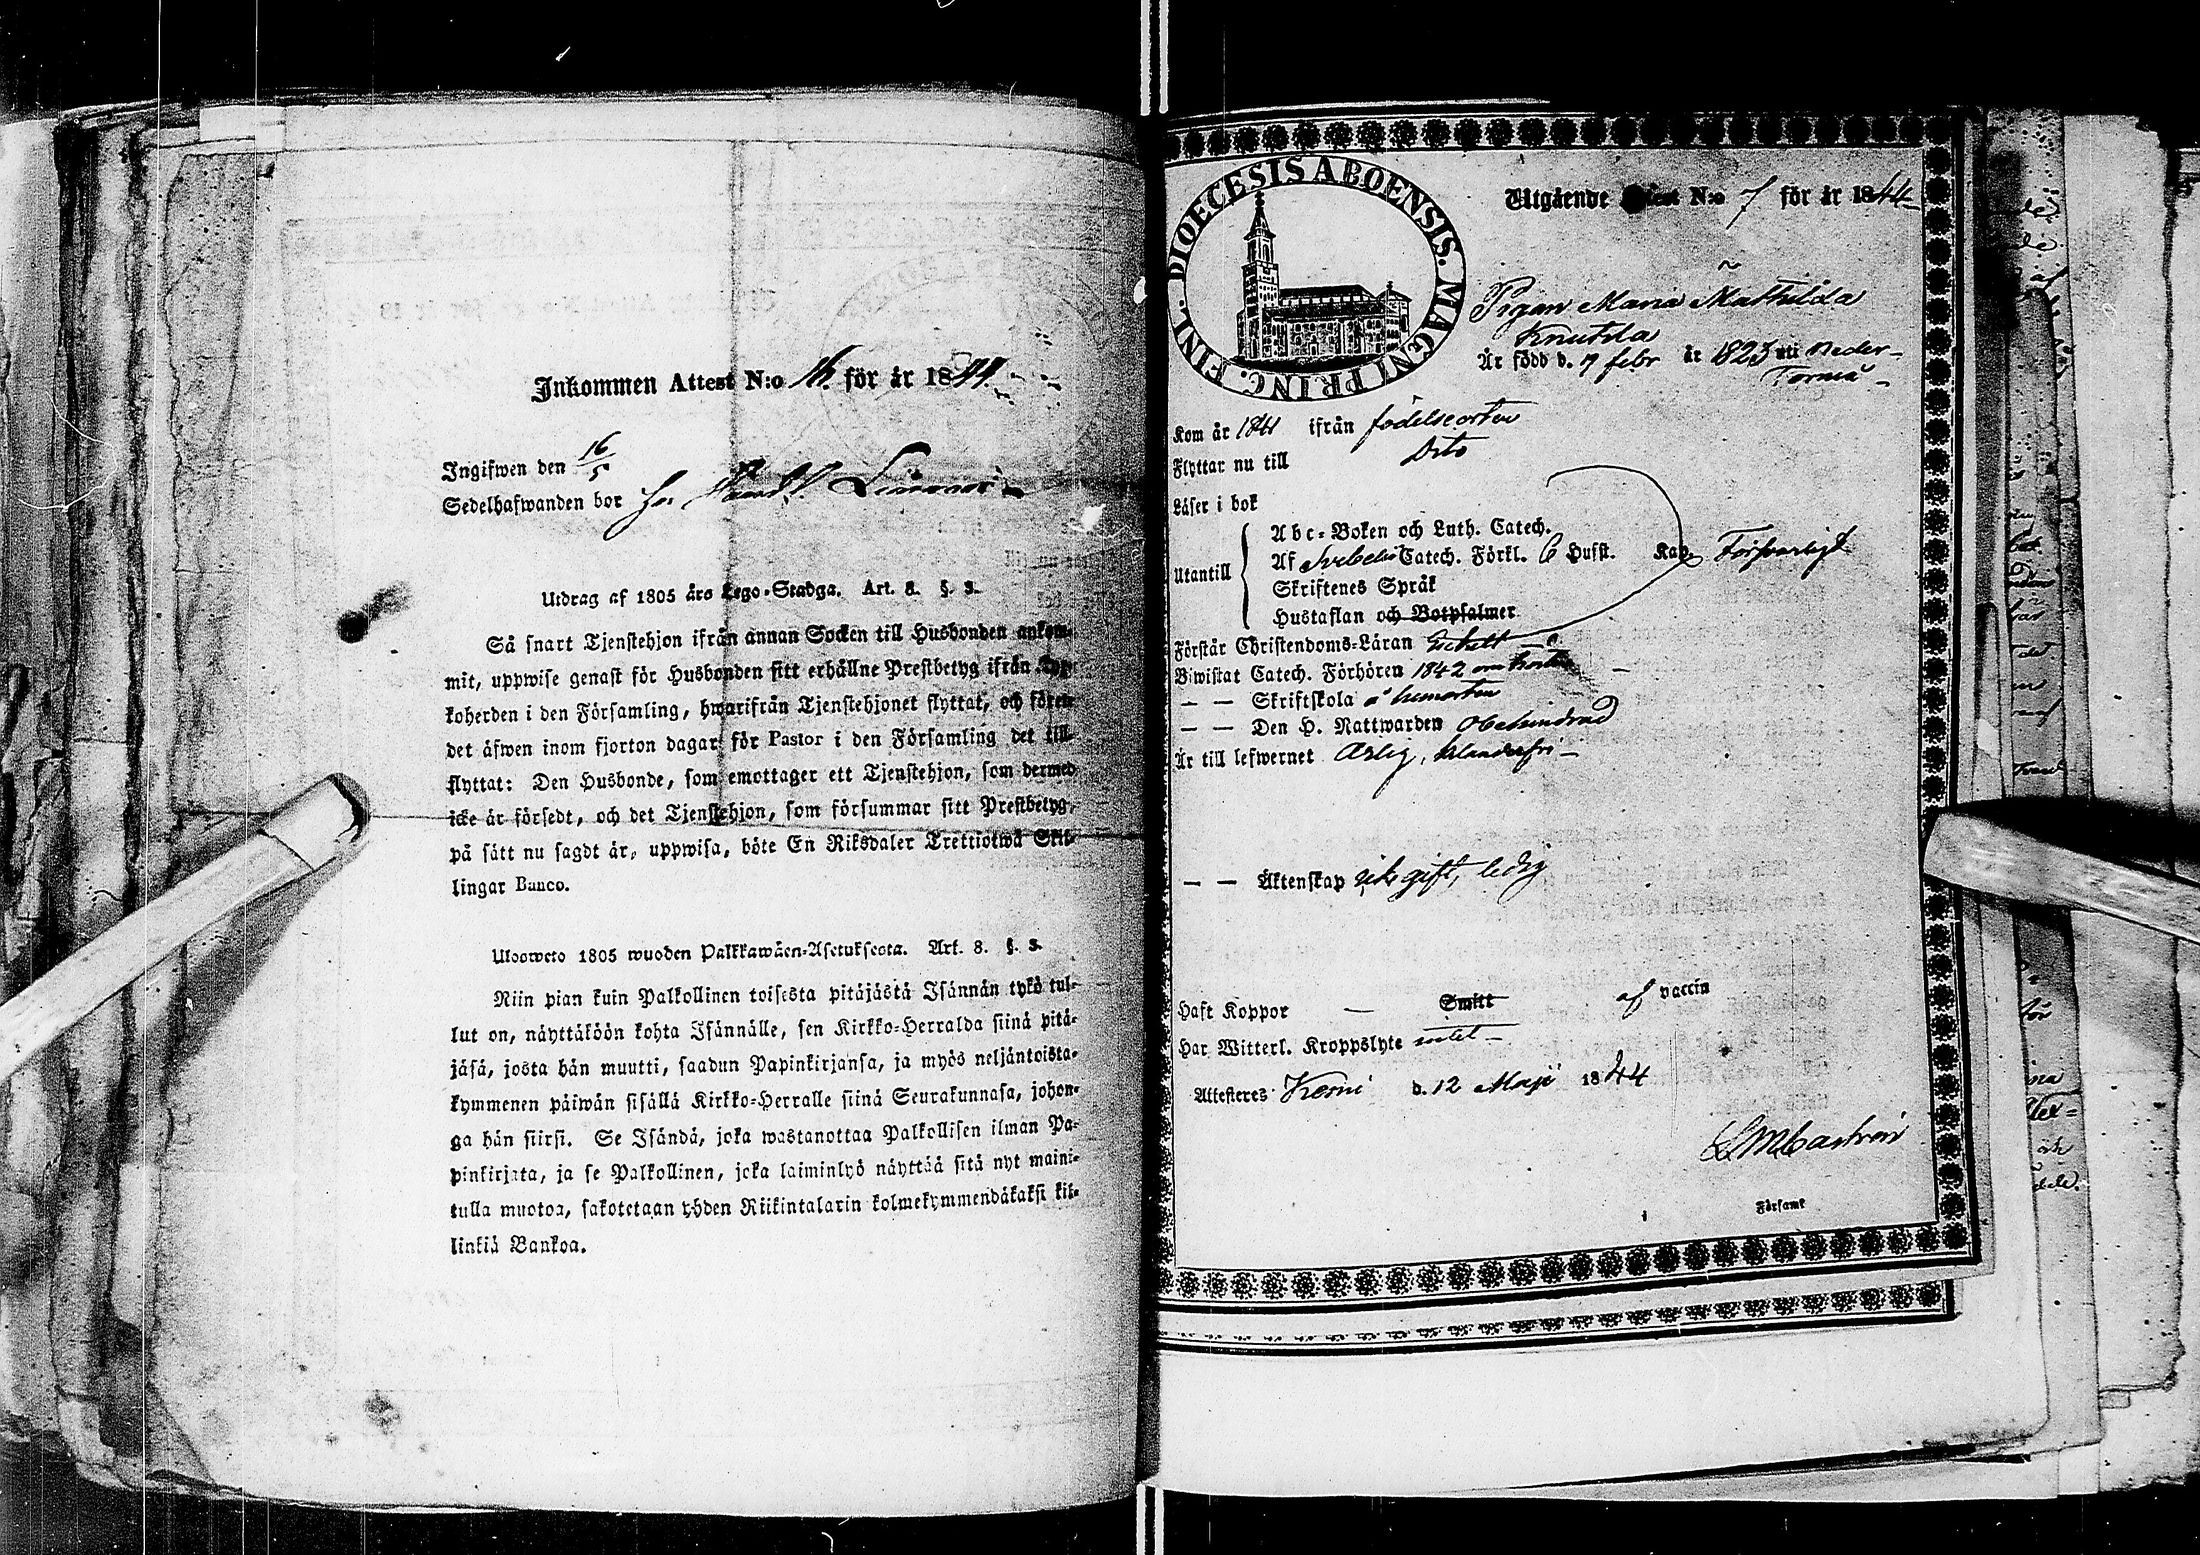 Inkommen Attest N:o 16. för år 1844.
Ingifwen den 16/5
Sedelhafwanden bor hos
Utdrag af 1805 års Lego-Stadga. Art. 8. §. 3.
Så snart Tjenstehjon ifrån annan Socken till Husbonden ankom-
mit, uppwise genast för Husbonden sitt erhållne Prestbetyg ifrån Kyr-
koherden i den Församling, hwarifrån Tjenstehjonet flyttat, och förete
det äfwen inom fjorton dagar för Pastor i den Församling det till-
flyttat: Den Husbonde, som emottager ett Tjenstehjon, som dermed
icke är försedt, och det Tjenstehjon, som försummar sitt Prestbetyg,
på sätt nu sagdt är, uppwisa, böte En Riksdaler Trettiotwå Skil-
lingar Banco.
Ulosweto 1805 wuoden Palkkawäen-Asetuksesta. Art. 8. §. 3.
Niin pian kuin Palkollinen toisesta pitäjästä Isännän tykö tul-
lut on, näyttäköön kohta Isännälle, sen Kirkko-Herralda siinä pitä-
jäsä, josta hän muutti, saadun Papinkirjansa, ja myös neljäntoista-
kymmenen päiwän sisällä Kirkko-Herralle siinä Seurakunnasa, johon-
ga hän siirsi. Se Isändä, joka wastanottaa Palkollisen ilman Pa-
pinkirjata, ja se Palkollinen, joka laiminlyö näyttää sitä nyt maini-
tulla muotoa, sakotetaan yhden Riikintalarin kolmekymmendäkaksi kil-
linkiä Bankoa.
DIOECESIS ABOENSIS. MAGNI PRINC. FINL.
Utgående Attest N:o 7 för år 1844
Pigan Maria Mathilda
Knutda
Är född d. 17 febr år 1823 uti Neder-
Torneå
Kom år 1841 ifrån födelseorten
Flyttar nu till Dito
Läser i bok
Utantill
Abc-Boken och Luth. Catech.
Af Svebelii Catech. Förkl. 6 Hufst. Kap. Försvarligt
Skriftenes Språk
Hustaflan och Botpsalmer
Förstår Christendoms-Läran Enkelt
Biwistat Catech. Förhören 1842 om hösten
— — Skriftskola å hemorten
— — Den H. Nattwarden obehindrad
Är till lefwernet Ärlig,
— — Äktenskap icke gift, ledig
Haft Koppor — Smitt af vaccin
Har Witterl. Kroppslyte intet
Attesteres Kemi d. 12 Maji 1844
EMCastrén
i Församl